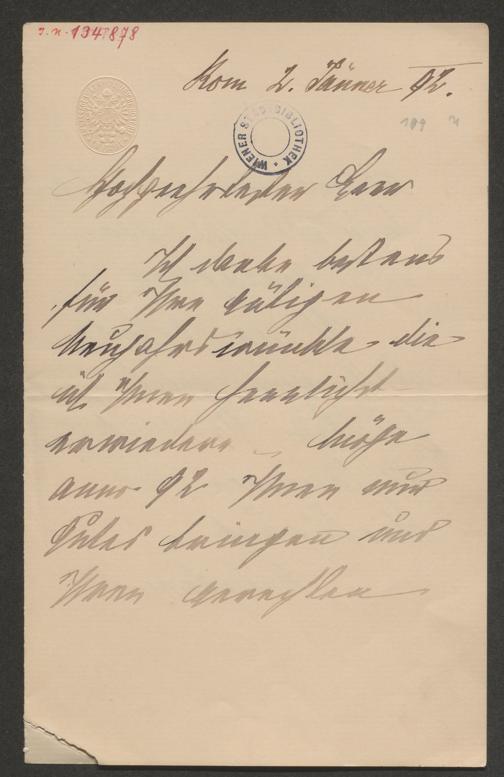 I. N. 134878
Rom 2. Jänner 92.
WIENER STADTBIBLIOTHEK
109
Hochverehrtester Herr
Ich danke bestens
für Ihre gütigen
Neujahrswünsche die
ich Ihnen herzlichst
erwiedere – Möge
anno 92 Ihnen nur
Gutes bringen und
Ihren gerechten